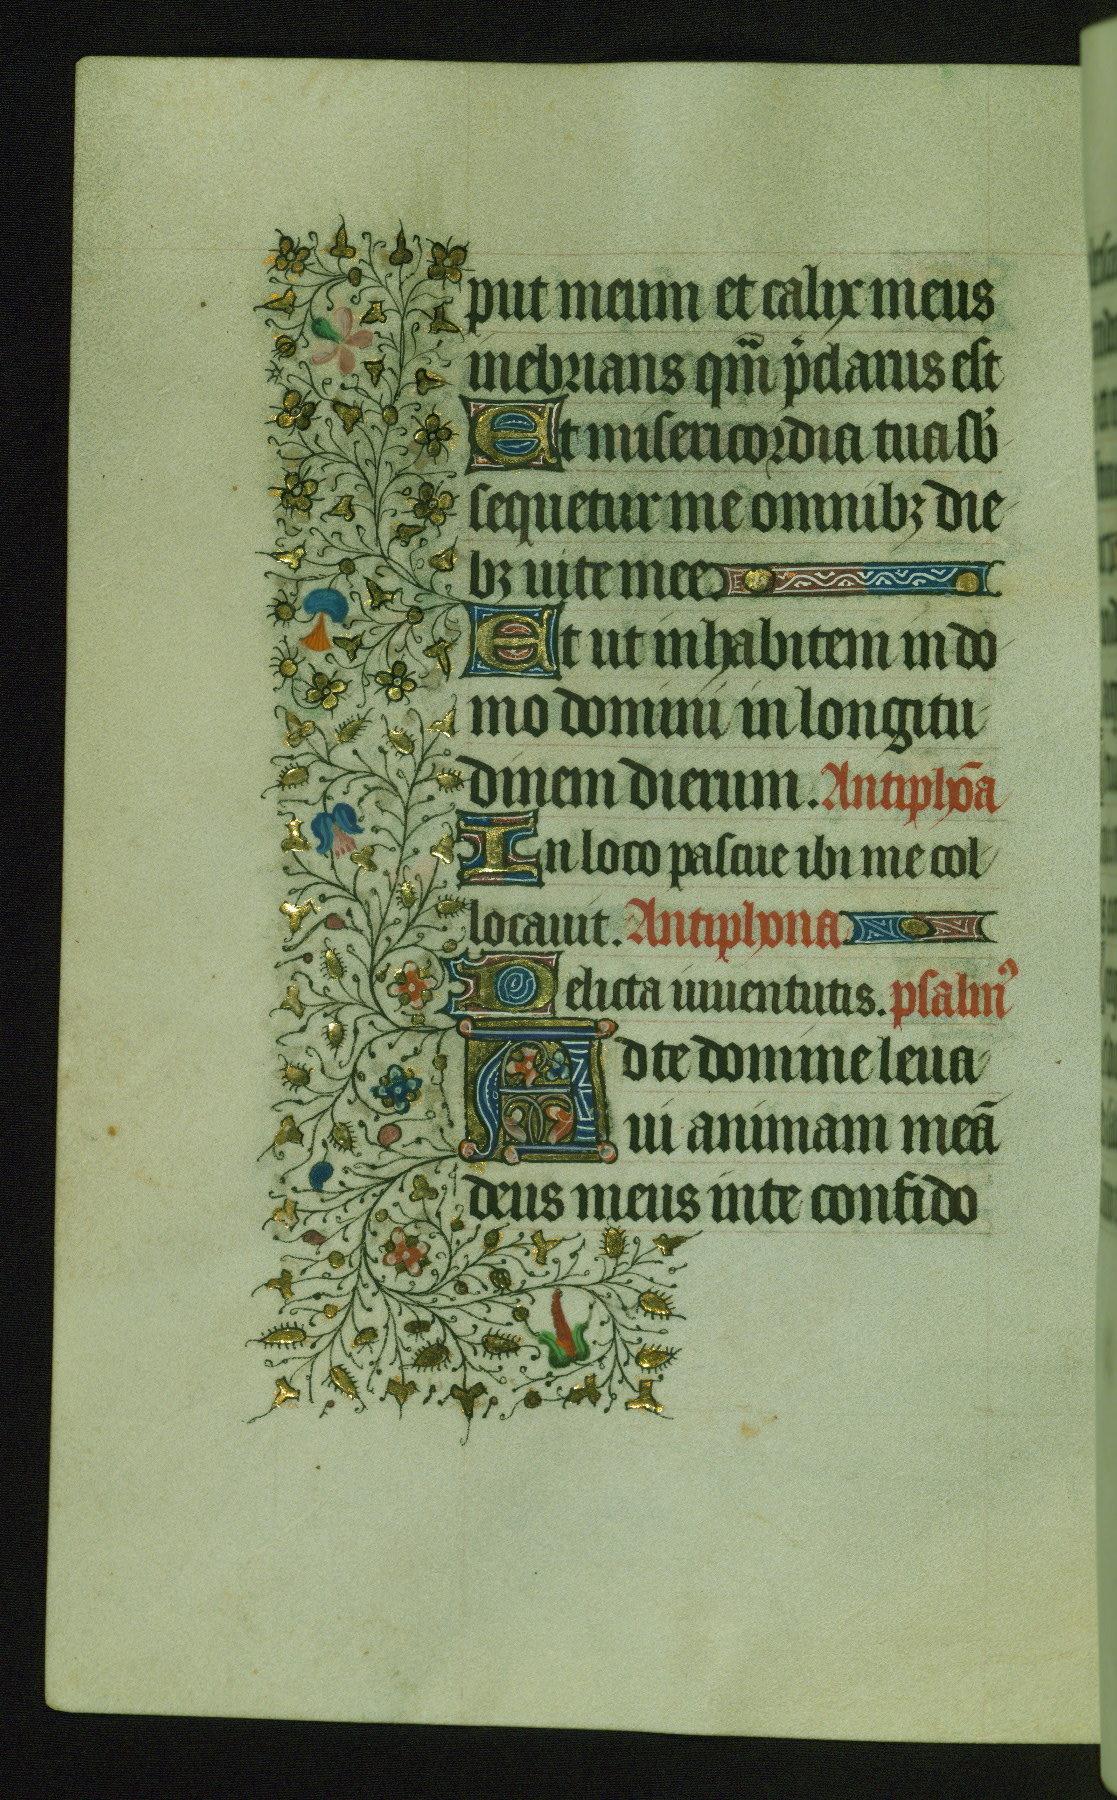 put meum et calix meus
inebrians qm̄ p̄clarus est
Et misericordia tua sb̄
sequetur me omnibꝫ die
bꝫ uite mee
Et ut inhabitem in do
mo domini in longitu
dinem dierum. Antipho̅a
In loco pascue ibi me col
locauit. Antiphona
Delicta iuuentutis. psalmꝰ
Ad te domine leua
ui animam meā
deus meus in te confido